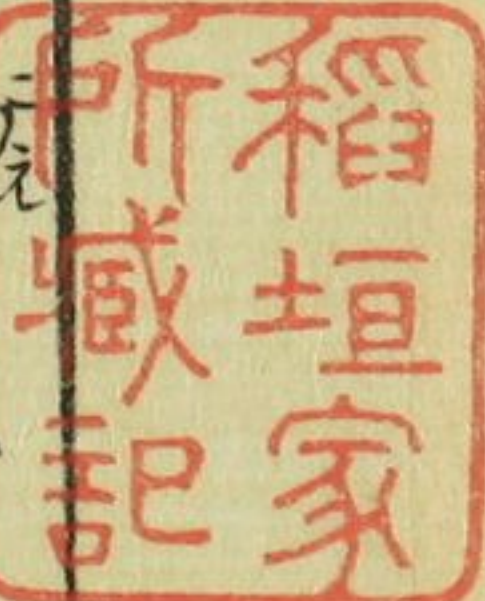 稻垣家
所臧記